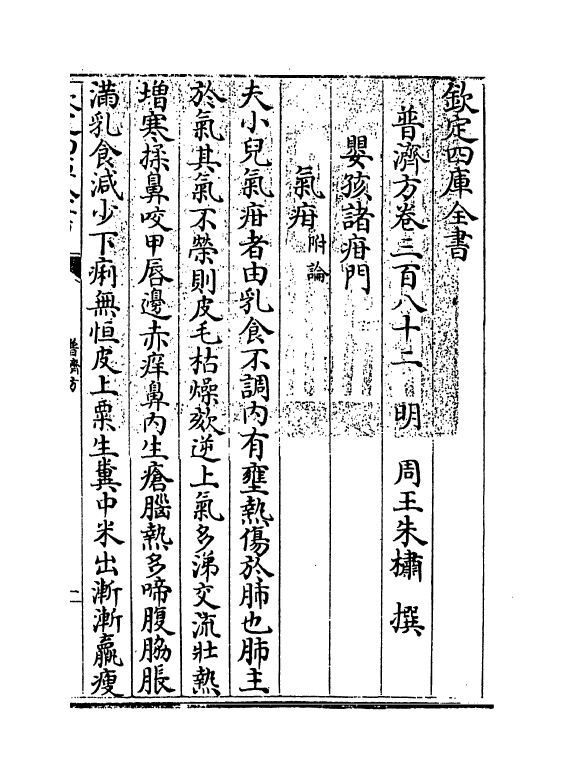 欽定四庫全書
普濟方卷三百八十二　明　周王朱橚　撰
嬰孩諸疳門
氣疳附論
夫小兒氣疳者由乳食不調内有壅熱傷於肺也肺主
於氣其氣不榮則皮毛枯燥欬逆上氣多涕交流壯熱
増寒揉鼻咬甲唇邊赤痒鼻内生瘡腦熱多啼腹脇脹
滿乳食減少下痢無恒皮上粟生糞中米出漸漸羸瘦
普濟方